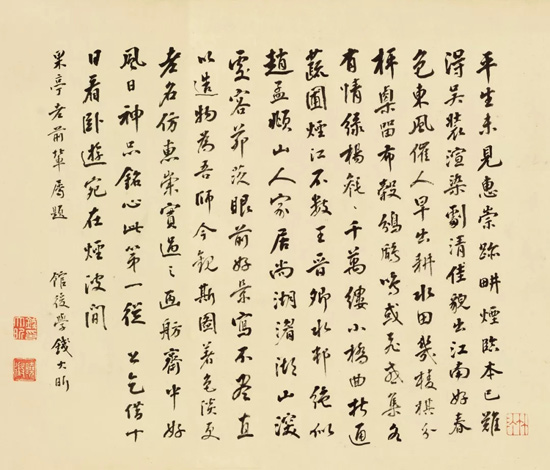 平生未見惠崇跡畊煙臨本已難
得吳裝渲染劇清佳貌出江南好春
色東風催人早出耕水田幾棱棋分
枰栗留布穀鵓鴣鳴或飛或集各
有情綠楊毿〻千萬縷小橋曲折通
蔬圃煙江不數王晉卿水邨絕似
趙孟頫山人家居尚湖渚湖山深
處容茆茨眼前好景寫不盡直
以造物為吾師今觀斯圖著色淡更
老名仿惠崇實過之画舫齋中好
風日神品銘心此第一從公乞借十
日看臥遊宛在煙波間
果亭老前輩屬題 館後學錢大昕